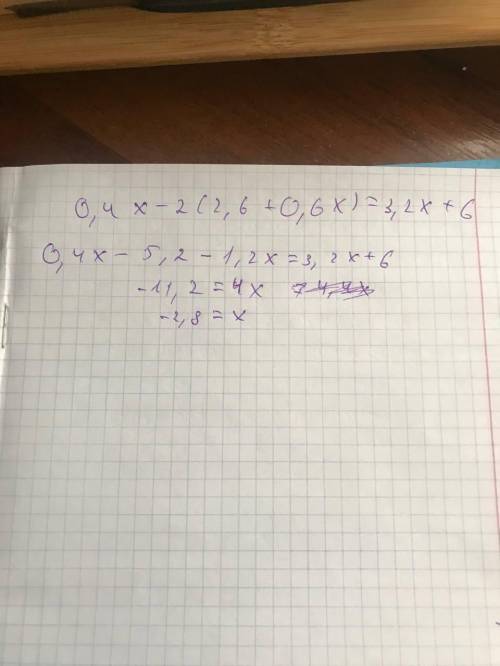 0,4x-2(2,6+0,6x)=3,2x+6
0,4x-5,2-1,2x=3,2x+6
-11,2=4x
-2,8=x